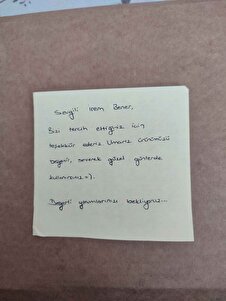 Sevgili İrem Bener,
Bizi tercih ettiğiniz için
teşekkür ederiz Umarız ürünümüzü
beğenir, severek güzel günlerde
kullanırsınız =).
Değerli yorumlarınızı bekliyoruz...